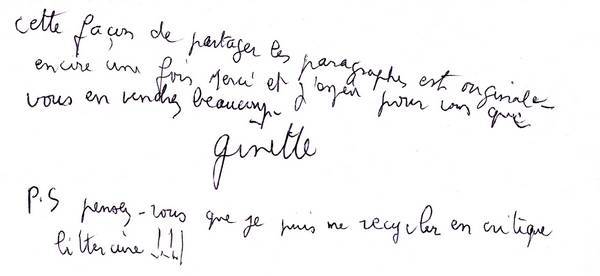 cette façon de partager les paragraphes est originale_
encore une fois Merci et pour vous que
vous en vendrez beaucoup.
ginette
P.S pensez-vous que je puis me recycler en critique
litteraire !!!